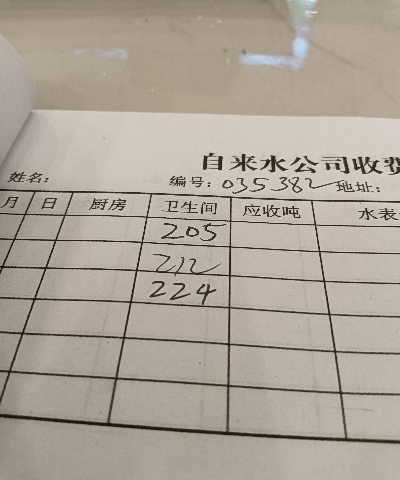 自来水公司收费
姓名： 编号：035382 地址：
月 日 厨房 卫生间 应收吨 水表
205
212
224